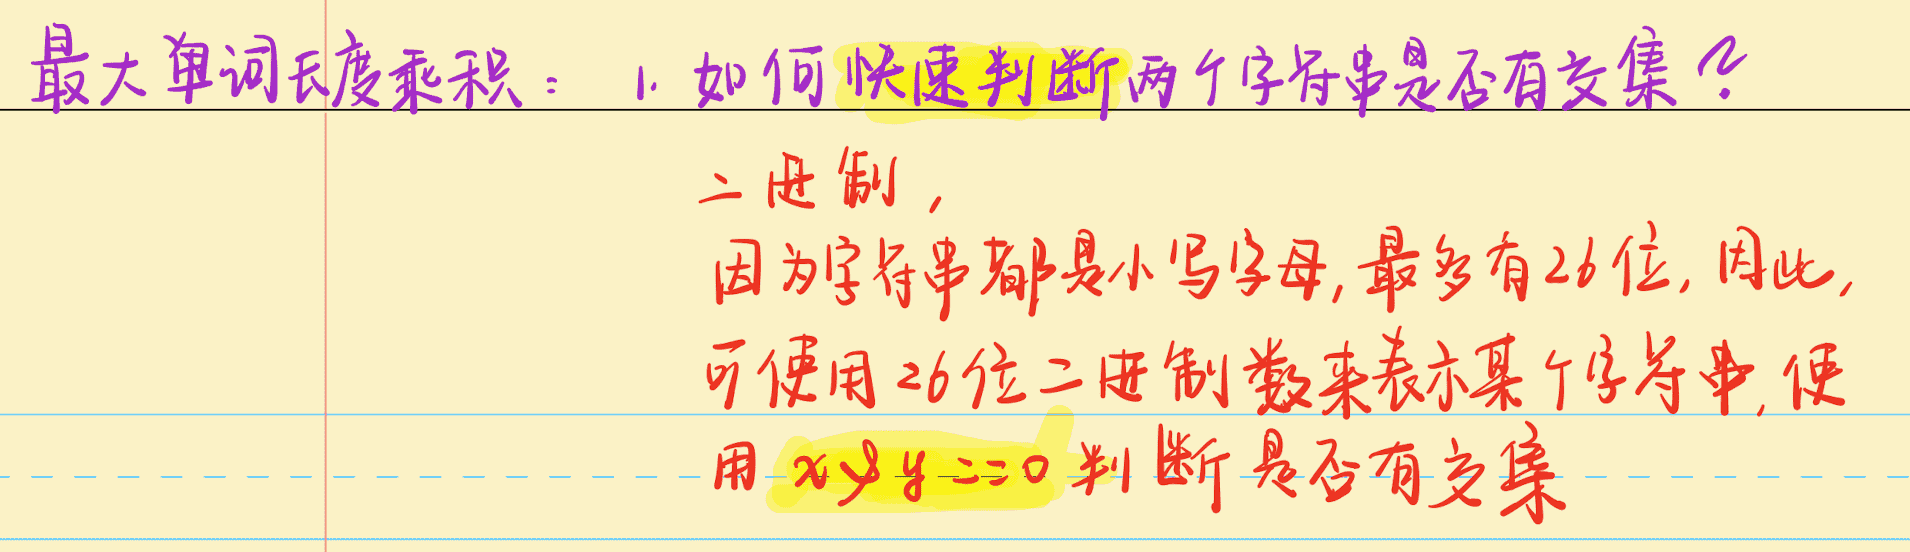 最大单词长度乘积： 1. 如何快速判断两个字符串是否有交集？
二进制，
因为字符串都是小写字母，最多有26位，因此，
可使用26位二进制数来表示某个字符串，使
用 x & y == 0 判断是否有交集